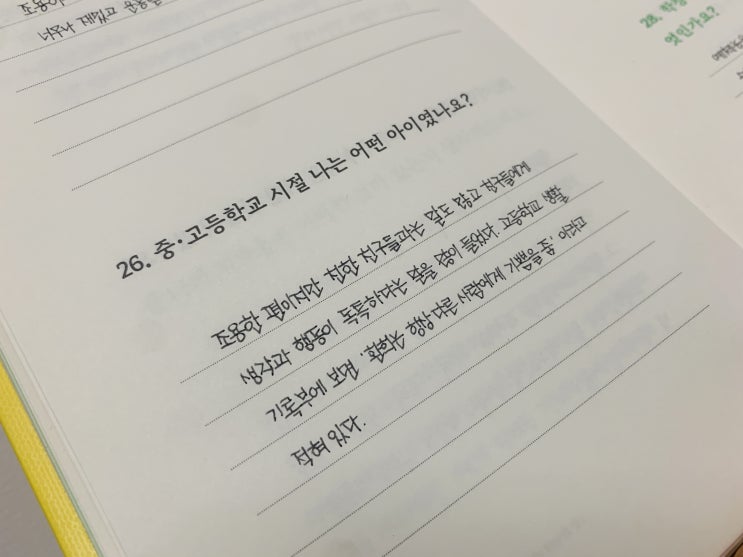 조용하
너무나 재밌고
26. 중·고등학교 시절 나는 어떤 아이였나요?
조용한 편이지만 친한 친구들과는 말도 많고 친구들에게
생각과 행동이 독특하다는 말을 많이 들었다. 고등학교 생활
기록부에 보면 항상 다른 사람에게 기쁨을 줌, 이라고
적혀 있다.
28.
엇인가요?